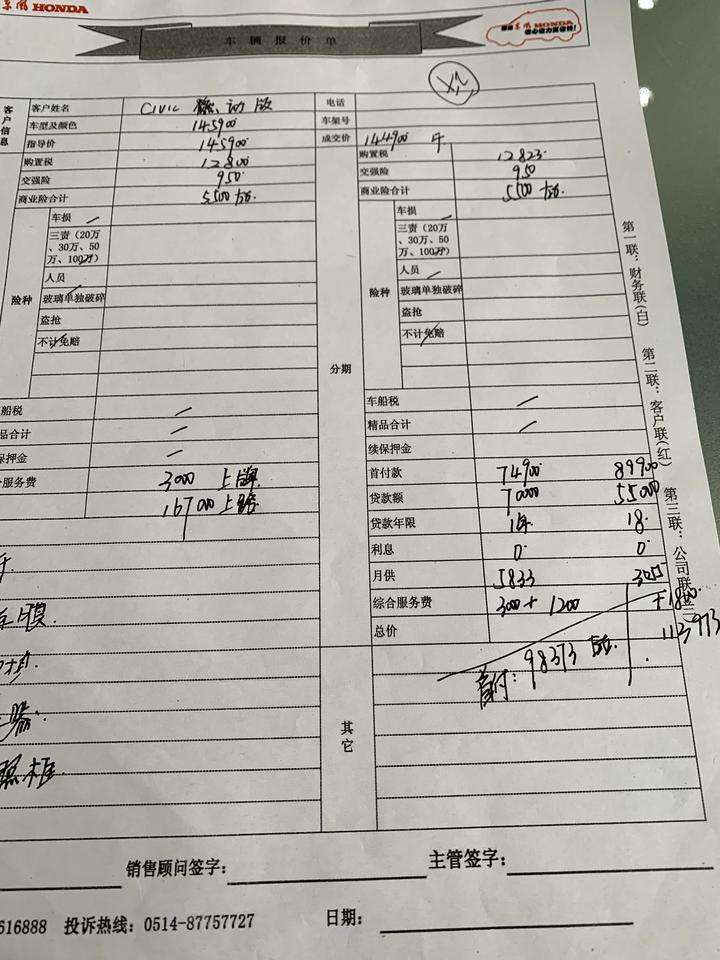 东风 HONDA
车 辆 报 价 单
东风 HONDA
客户信息
客户姓名
CIVIC 动版
电话
车型及颜色
145900
车架号
指导价
145900
成交价
144900
购置税
12800
购置税
12823
交强险
950
交强险
950
商业险合计
5500
商业险合计
5500
险种
车损
三责（20万、30万、50万、100万）
人员
玻璃单独破碎
盗抢
不计免赔
分期
险种
车损
三责（20万、30万、50万、100万）
人员
玻璃单独破碎
盗抢
不计免赔
船税
车船税
品合计
精品合计
保押金
续保押金
服务费
3000 上牌
167000
首付款
74900 89900
贷款额
70000 55000
贷款年限
1年 18
利息
0 0
月供
5833 3055
综合服务费
3000+1200 +1800
总价
首付：98373 113973
膜
其它
销售顾问签字：
主管签字：
616888 投诉热线：0514-87757727
日期：
第一联：财务联（白）
第二联：客户联（红）
第三联：公司联